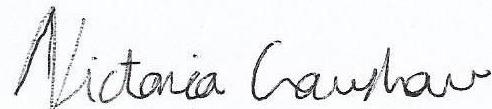 Victoria Crawshaw